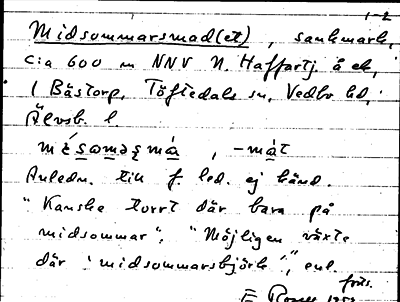 1-2
Midsommarsmad(et), sankmark,
c:a 600 m NNV N. Haffartj. å ek,
i Bästorp, Töftedals sn, Vedbo hd,
Älvsb. l.
mésomaṣmá, -mát
Anledn. till f. led. ej känd.
"Kanske torrt där bara på
midsommar", "Möjligen växte
där 'midsommarsbjörk'", enl.
förs.
E